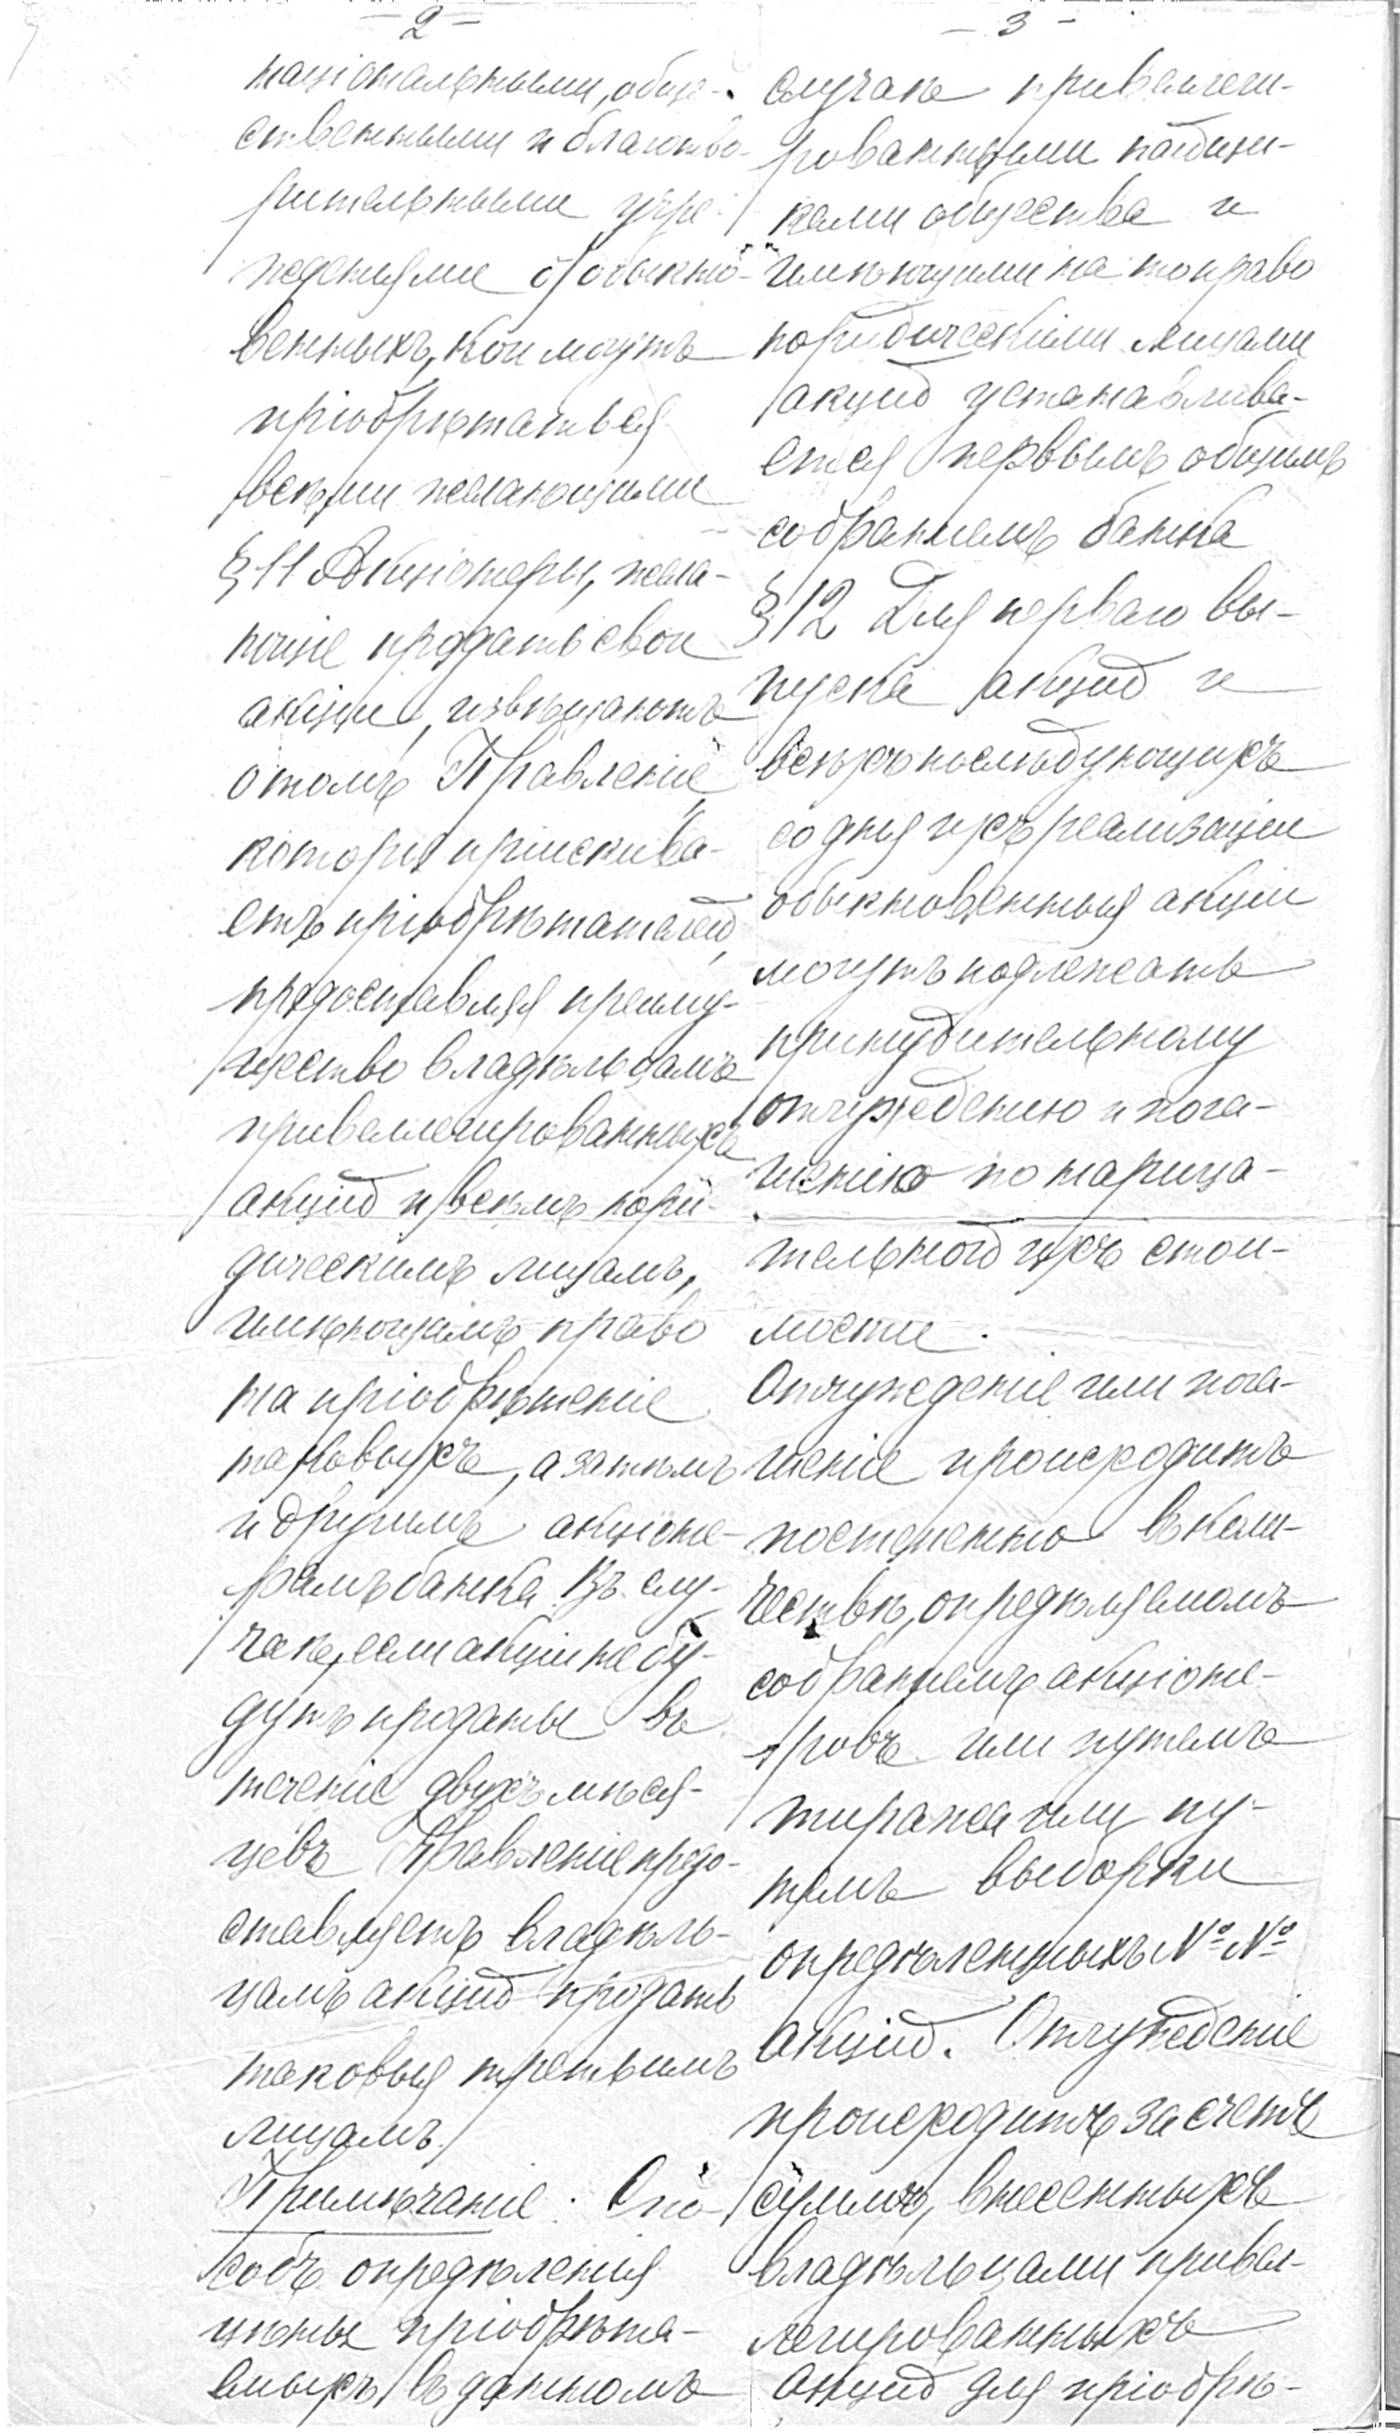 - 2 -
національными, обще-
ственными и благотво-
рительными учре-
жденіями б) обыкно-
венныхъ, кои могутъ
пріобрѣтаться
всѣми желающими
§ 11 Акціонеры, жела-
ющіе продать свои
акціи, извѣщаютъ
о томъ Правленіе,
которое пріискива-
етъ пріобрѣтателей,
предоставляя преиму-
щество владѣльцамъ
привеллегированныхъ
акцій и всѣмъ юри-
дическимъ лицамъ,
имѣющимъ право
на пріобрѣтеніе
таковыхъ, а затѣмъ
и другимъ акціоне-
рамъ банка. Въ слу-
чаѣ, если акціи не бу-
дутъ проданы въ
теченіе двухъ мѣся-
цевъ Правленіе предо-
ставляетъ владѣль-
цамъ акцій продать
таковыя третьимъ
лицамъ.
Примѣчаніе: Спо-
собъ опредѣленія
цѣны пріобрѣта-
емыхъ въ данномъ
- 3 -
случаѣ привеллеги-
рованными пайщи-
ками общества и
имѣющими на то право
юридическими лицами
акцій устанавлива-
ется первымъ общимъ
собраніемъ банка
§ 12 Для перваго вы-
пуска акцій и
всѣхъ послѣдующихъ
со дня ихъ реализаціи
обыкновенныя акціи
могутъ подлежать
принудительному
отчужденію и пога-
шенію по нарица-
тельной ихъ стои-
мости.
Отчужденіе или пога-
шеніе происходитъ
постепенно въ коли-
чествѣ, опредѣляемомъ
собраніемъ акціоне-
ровъ или путемъ
тиража или пу-
темъ выборки
опредѣленныхъ №№
акцій. Отчужденіе
происходитъ за счетъ
суммъ, внесенныхъ
владѣльцами привел-
легированныхъ
акцій для пріобрѣ-